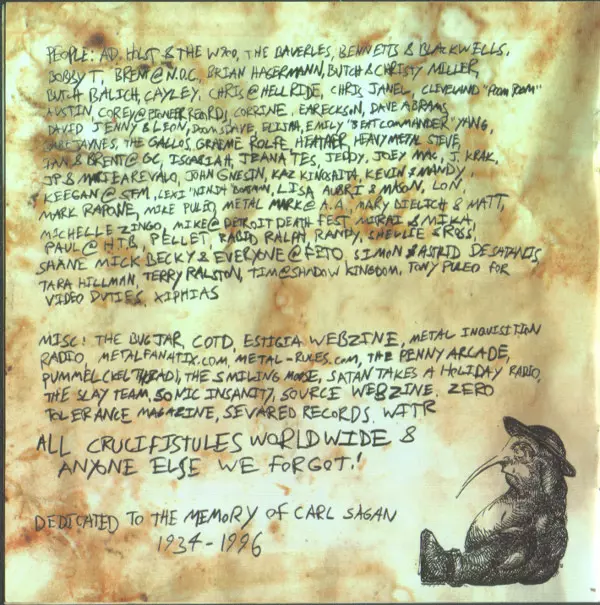 PEOPLE: AD, HOLST & THE W200, THE BAVERLES, BENNETTS & BLACKWELLS,
BOBBY T, BREM@N.O.C. BRIAN HAGERMANN, BUTCH & CHRISTY MILLER,
BUTCH BALICH, CAYLEY, CHRIS@HELLRIDE, CHRIS JANEL, CLEVELAND "POOM POOM"
AUSTIN, COREY@PIONEER RECORDS, CORRINE, EARECKSON, DAVE ABRAMS
DAVID JENNY & LEON, DOOMSDAVE, ELISHA, EMILY "BEAT COMMANDER" YANG,
JAYNES, THE GALLOS, GRAEME ROLFE, HEATHER, HEAVY METAL STEVE,
IAN & BRENT@GC, ISCARIAH, JEANA TES, JEDDY, JOEY MAC, J. KRAK,
JP & MATIE AREVALO, JOHN GNESIN, KAZ KINOSHITA, KEVIN & MANDY,
KEEGAN@SFM, LEXI "NINJA" BOATMAN, LISA AUBRI & MASON, LON,
MARK RAPONE, MIKE PULEO, METAL MARK@A.A., MARY BIELICH & MATT,
MICHELLE ZINGO, MIKE@DETROIT DEATH FEST, MIRAI & MIKA,
PAUL@HTB, PELLET, RABID RALPH, RANDY, SHELLIE & ROSS,
SHANE MICK BECKY & EVERYONE@EETO, SIMON & ASTRID DESATANIS
TARA HILLMAN, TERRY RALSTON, TIM@SHADOW KINGDOM, TONY PULEO FOR
VIDEO DUTIES, XIPHIAS
MISC: THE BUG JAR, COTD, ESTIGIA WEBZINE, METAL INQUISITION
RADIO, METALFANATIX.COM, METAL-RULES.COM, THE PENNY ARCADE,
PUMMEL (KEL THRAD), THE SMILING MOOSE, SATAN TAKES A HOLIDAY RADIO,
THE SLAY TEAM, SONIC INSANITY, SOURCE WEBZINE, ZERO
TOLERANCE MAGAZINE, SEVARED RECORDS, WITR
ALL CRUCIFISTULES WORLDWIDE &
ANYONE ELSE WE FORGOT!
DEDICATED TO THE MEMORY OF CARL SAGAN
1934-1996